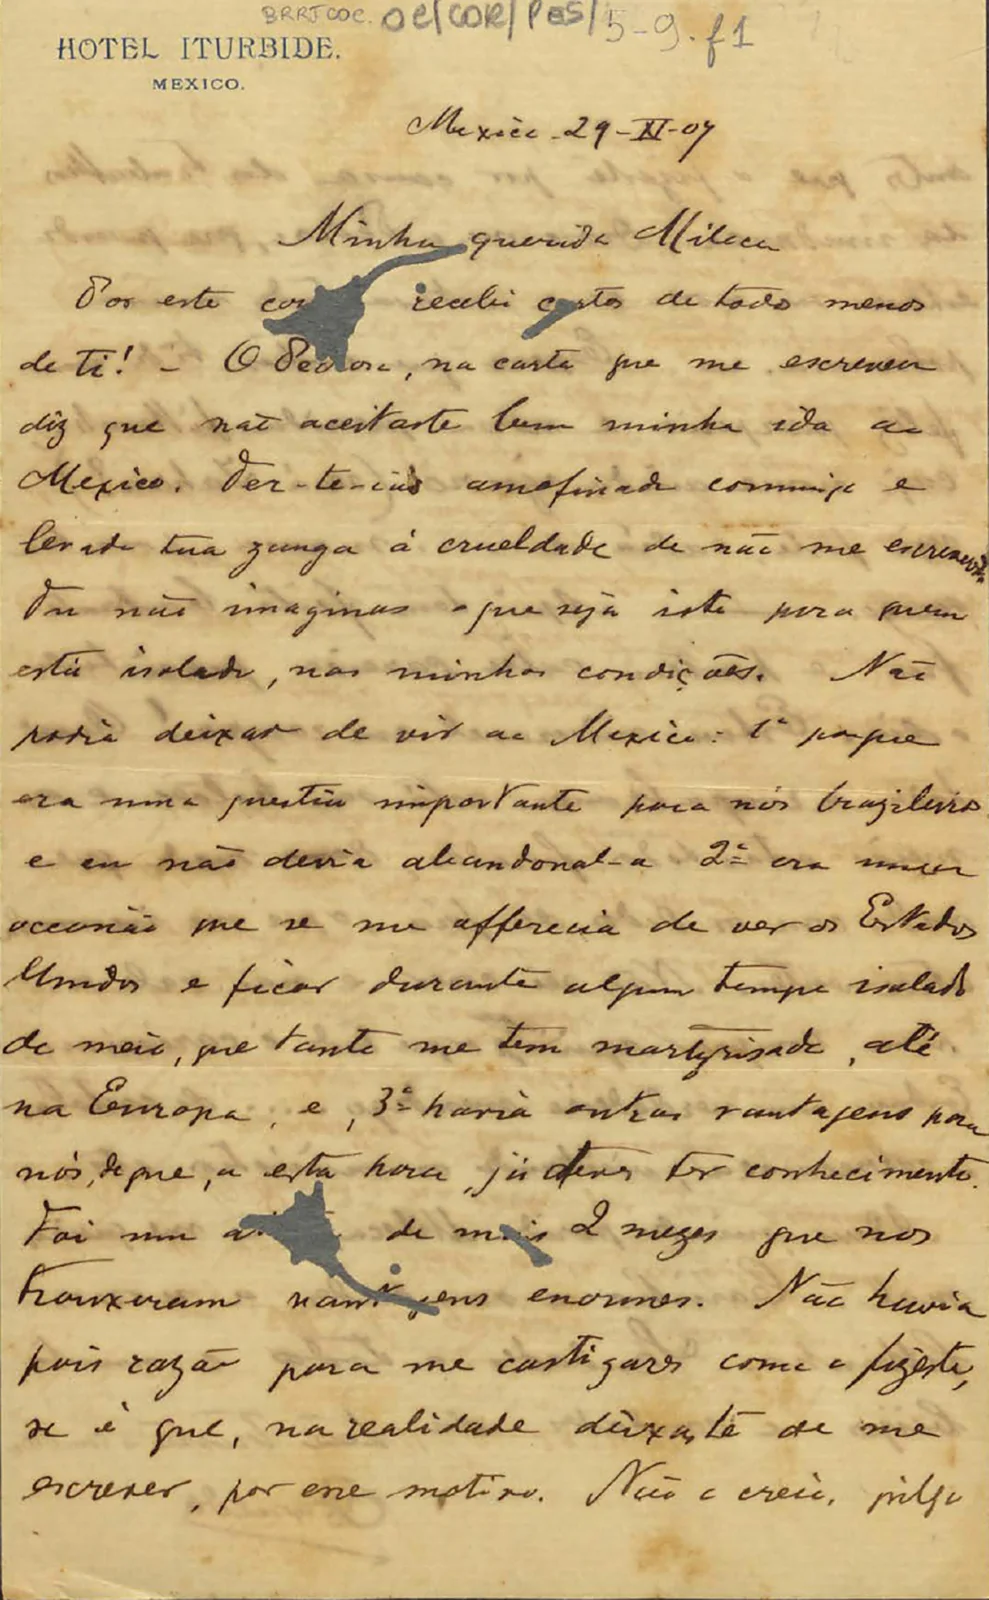 BRRJCOC. OC/COR/PES/5-9.f1
HOTEL ITURBIDE.
MEXICO.
Mexico - 29-XI-07
Minha querida Miloca
Por este recebi cartas de todo menos
de ti! - O na carta que me escreveu
diz que não aceitaste bem minha ida ao
Mexico. Ter-te-ias amofinado commigo e
levado tua zanga á crueldade de não me escrever?
Tu não imaginas o que seja isto para quem
está isolado, nas minhas condições. Não
podia deixar de vir ao Mexico: 1º porque
era uma questão importante para nós brazileiros
e eu não devia abandonal-a 2º era uma
occasião que se me offerecia de ver os Estados
Unidos e ficar durante algum tempo isolado
do meio, que tanto me tem martyrisado, até
na Europa, e, 3º havia outras vantagens para
nós, de que, a esta hora, já deves ter conhecimento.
Foi um de mais 2 mezes que nos
trouxeram vantagens enormes. Não havia
pois razão para me castigares como o fizeste,
se é que, na realidade deixaste de me
escrever, por esse motivo. Não o creio, julgo